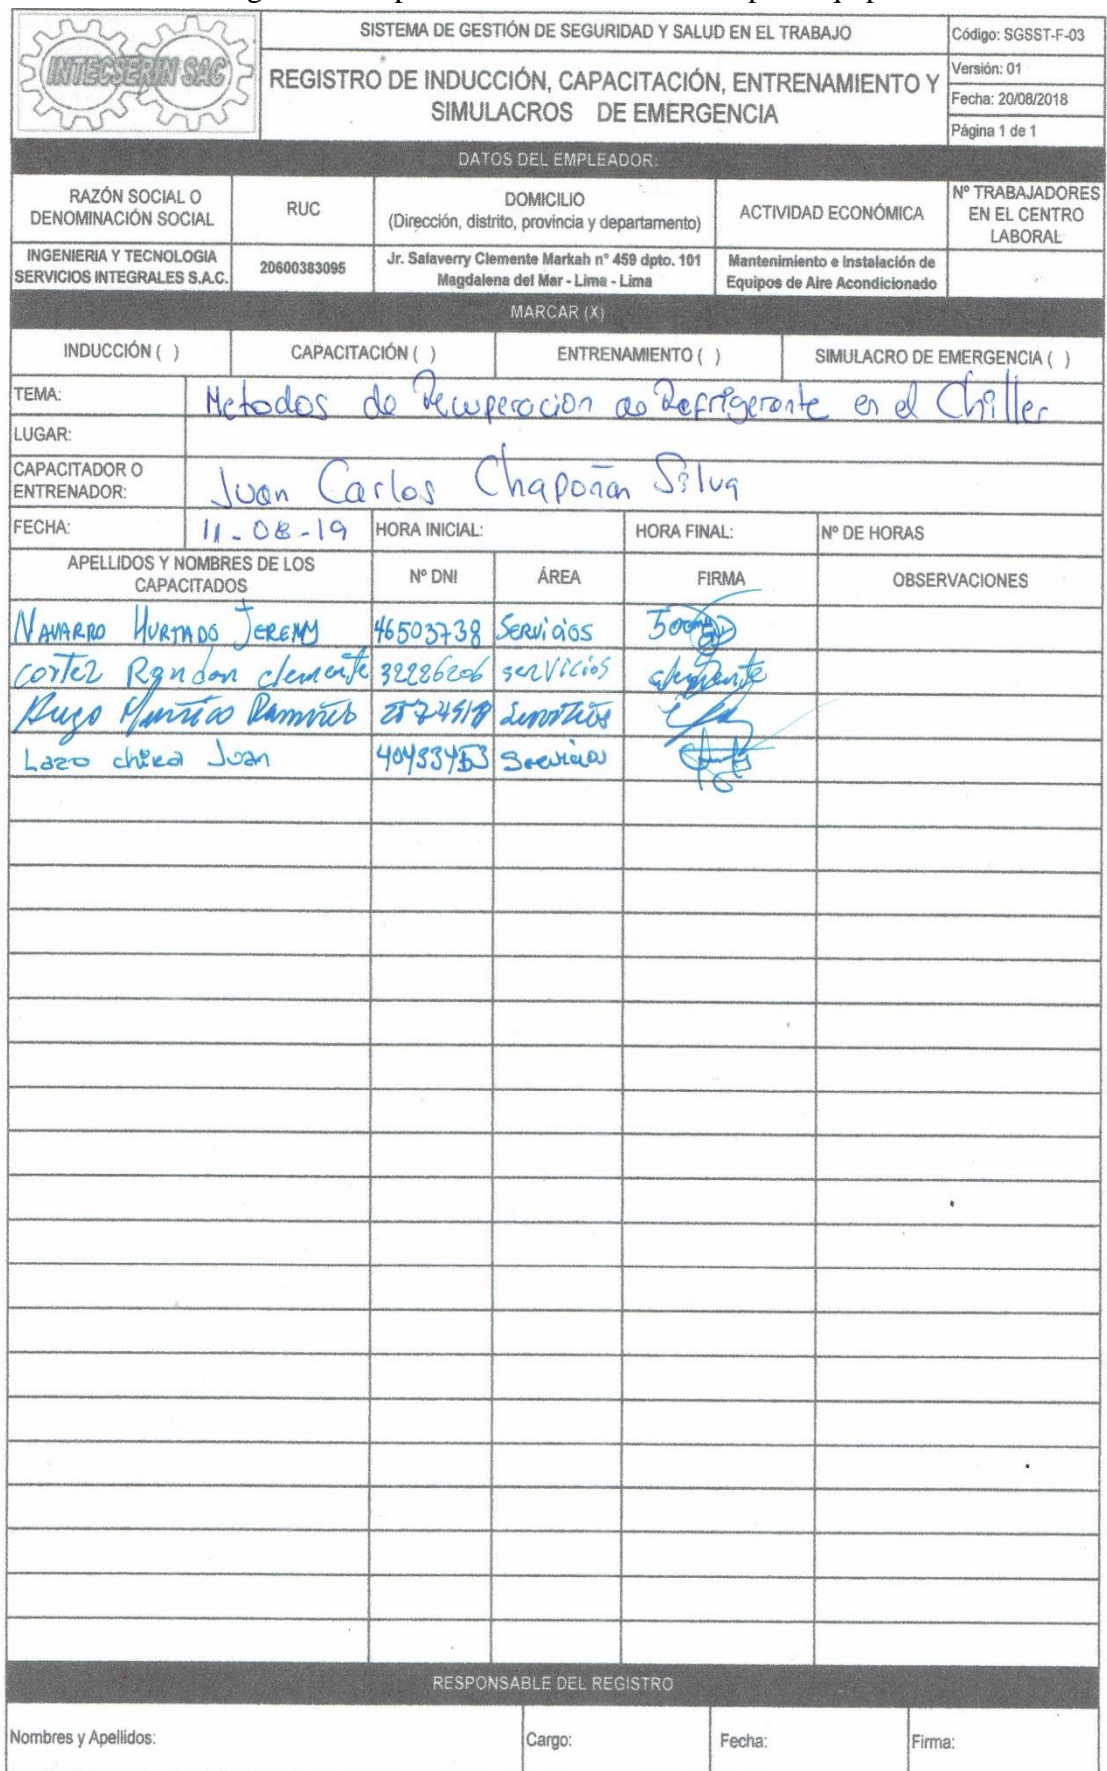 INTECSERIN SAC
SISTEMA DE GESTIÓN DE SEGURIDAD Y SALUD EN EL TRABAJO
REGISTRO DE INDUCCIÓN, CAPACITACIÓN, ENTRENAMIENTO Y
SIMULACROS DE EMERGENCIA
Código: SGSST-F-03
Versión: 01
Fecha: 20/08/2018
Página 1 de 1
DATOS DEL EMPLEADOR:
RAZÓN SOCIAL O DENOMINACIÓN SOCIAL RUC DOMICILIO (Dirección, distrito, provincia y departamento) ACTIVIDAD ECONÓMICA Nº TRABAJADORES EN EL CENTRO LABORAL
INGENIERIA Y TECNOLOGIA SERVICIOS INTEGRALES S.A.C. 20600383095 Jr. Salaverry Clemente Markah n° 459 dpto. 101 Magdalena del Mar - Lima - Lima Mantenimiento e Instalación de Equipos de Aire Acondicionado
MARCAR (X)
INDUCCIÓN ( ) CAPACITACIÓN ( ) ENTRENAMIENTO ( ) SIMULACRO DE EMERGENCIA ( )
TEMA: Metodos de Recuperacion de Refrigerante en el Chiller
LUGAR:
CAPACITADOR O ENTRENADOR: Juan Carlos Chapoñan Silva
FECHA: 11-08-19 HORA INICIAL: HORA FINAL: Nº DE HORAS
APELLIDOS Y NOMBRES DE LOS CAPACITADOS Nº DNI ÁREA FIRMA OBSERVACIONES
NAVARRO HURTADO JEREMY 46503738 Servicios
cortez Randan clemente 32226206 servicios clemente
Hugo Ramires Servicios
Lazo chica Juan 40433453 Servicios
RESPONSABLE DEL REGISTRO
Nombres y Apellidos: Cargo: Fecha: Firma: